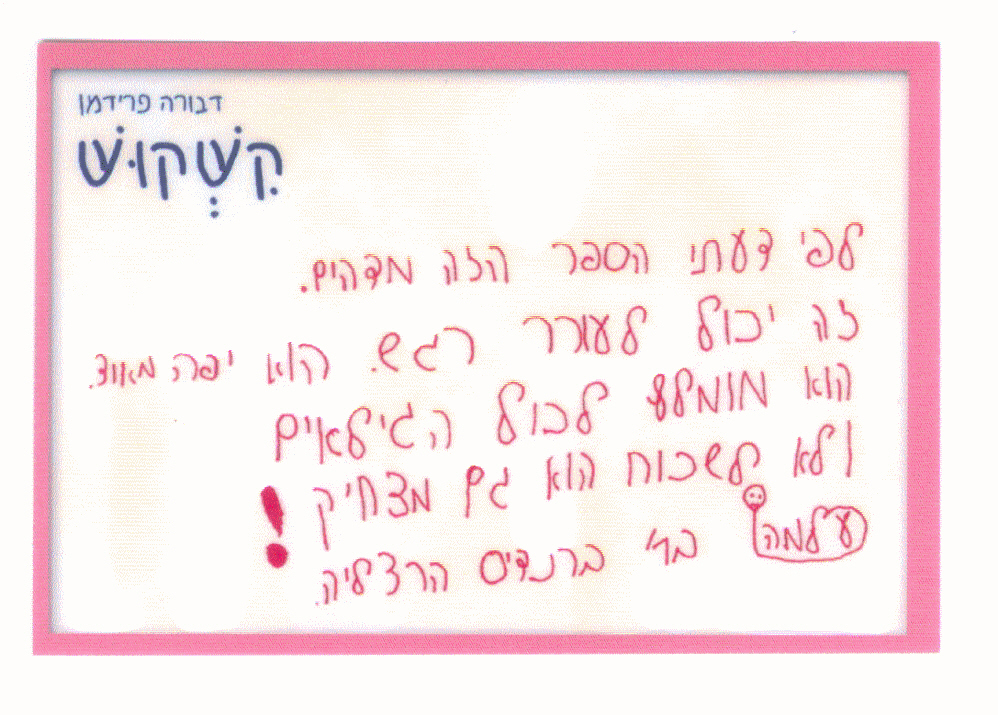 דבורה פרידמן
קִשְׁקוּשׁ
לפי דעתי הספר הזה מדהים.
זה יכול לעורר רגש. הוא יפה מאוד.
הוא מומלץ לכול הגילאים
ולא לשכוח הוא גם מצחיק!
עלמה בי" ברנדיס הרצליה.